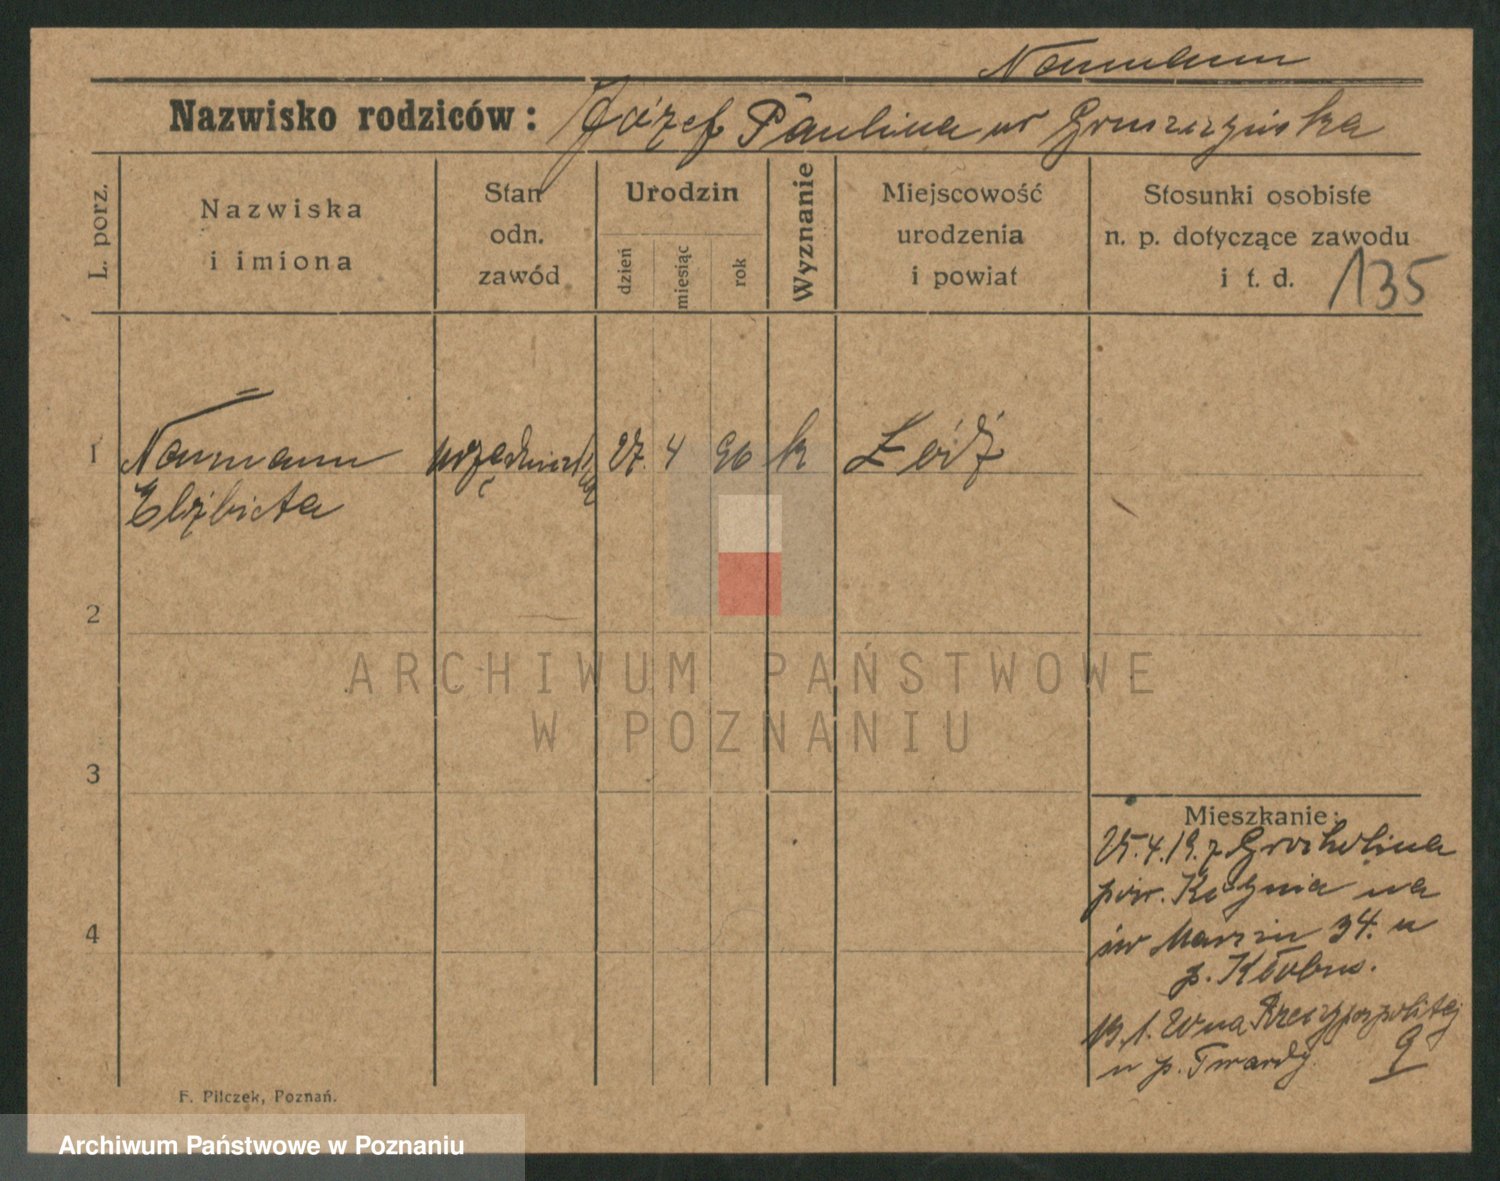 Naumann
Nazwisko rodziców: Józef Paulina ur Gruszczyńska
L. porz.
Nazwiska
i imiona
Stan
odn.
zawód
Urodzin
dzień
miesiąc
rok
Wyznanie
Miejscowość
urodzenia
i powiat
Stosunki osobiste
n. p. dotyczące zawodu
i t. d. 135
1 Naumann urzędniczka 27. 4 90 k Łódź
Elżbieta
2
ARCHIWUM PAŃSTWOWE
W POZNANIU
3
Mieszkanie:
25.4.19. z Grocholina
pow. Kcynia na
św Marcin 34. u
p. Kłobus.
1. 20 na Rzeczypospolitej
u p. Twardy 9
4
F. Pilczek, Poznań.
Archiwum Państwowe w Poznaniu